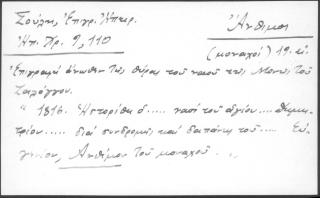 Σούλη, Ἐπιγρ. Ἠπειρ.
Ἠπ. Χρ. 9, 110
Ἄνθιμοι
(μοναχοί) 19. αἰ.
Ἐπιγραφή ἄνωθεν τῆς θύρας τοῦ ναοῦ τῆς Μονῆς τοῦ
" 1816. Ἱστορίθη ὁ ..... ναός τοῦ ἁγίου .... Δημη-
τρίου ..... διά συνδρομῆς καί δαπάνης τοῦ .... Εὐ-
γενίου, Ἀνθίμου τοῦ μοναχοῦ . . ,